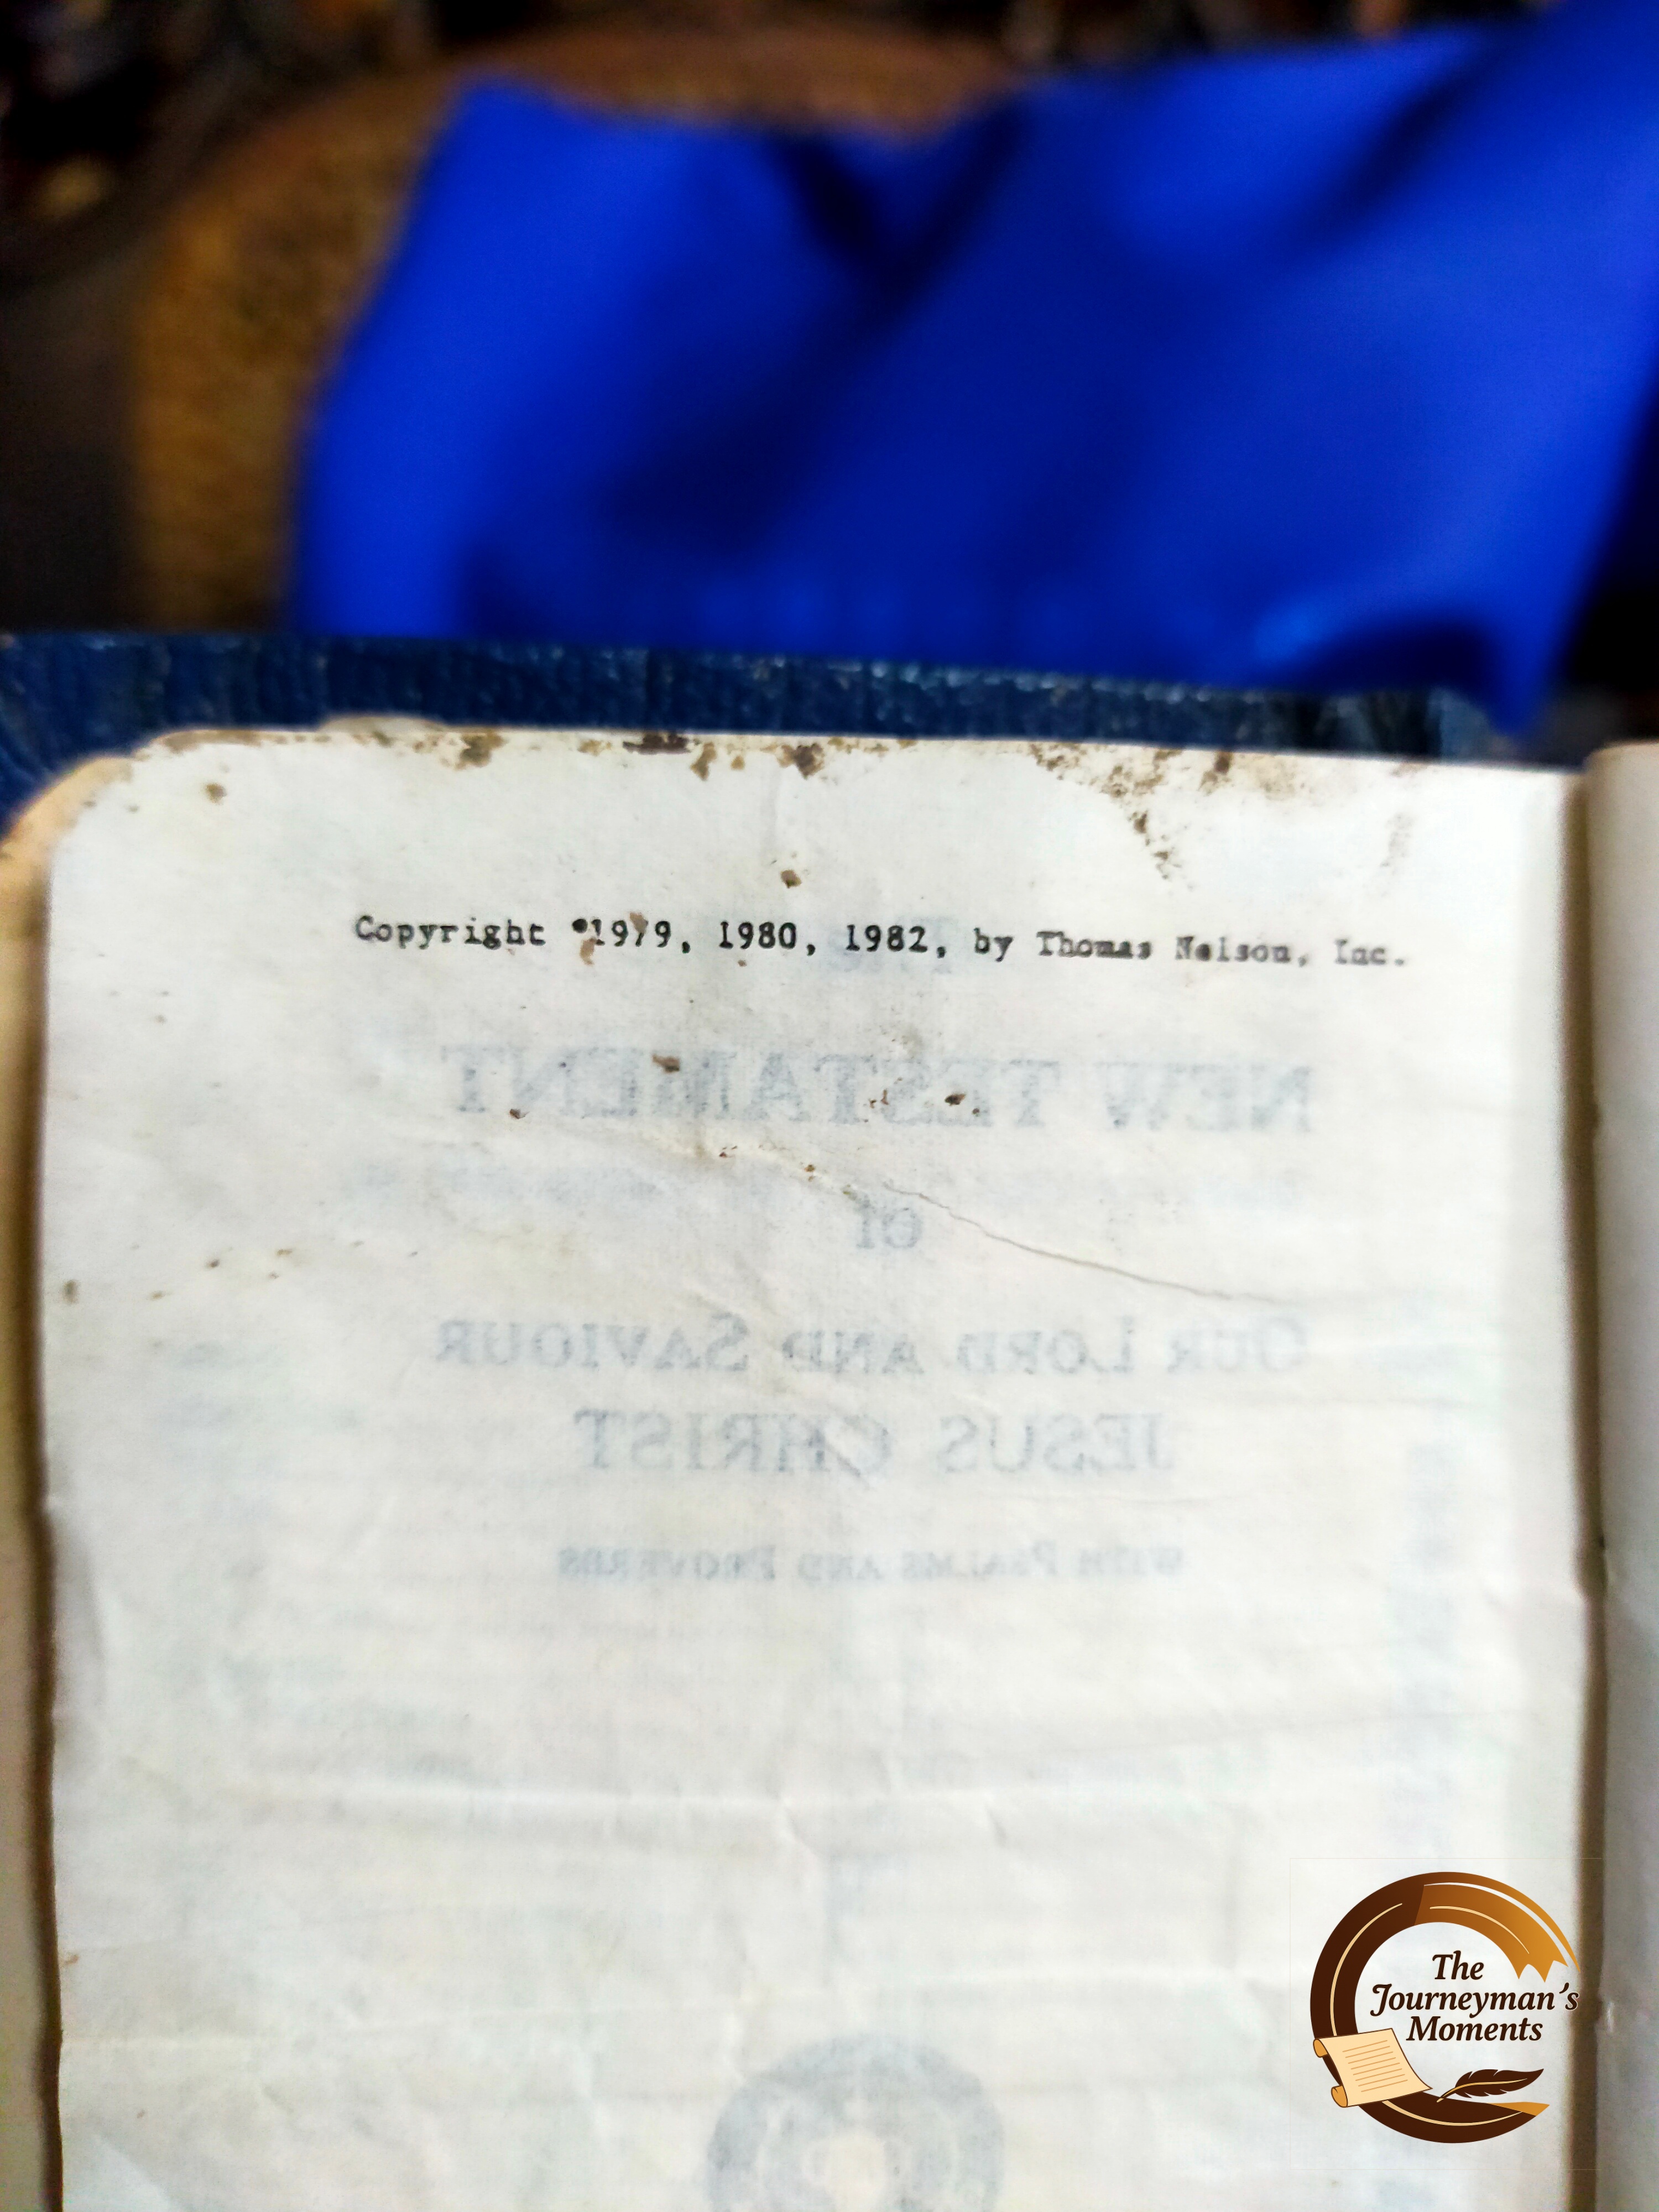 Copyright ©1979, 1980, 1982, by Thomas Nelson, Inc.
The
NEW TESTAMENT
Of
OUR LORD AND SAVIOUR
JESUS CHRIST
WITH PSALMS AND PROVERBS
The
Journeyman's
Moments